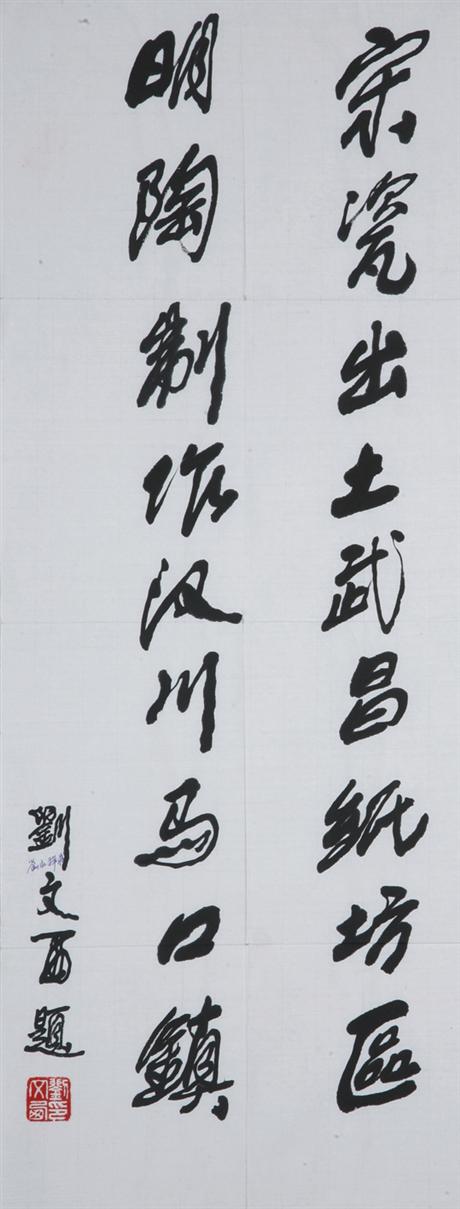 宋瓷出土武昌紙坊區
明陶制作汉川馬口鎮
劉文西題
劉印文西